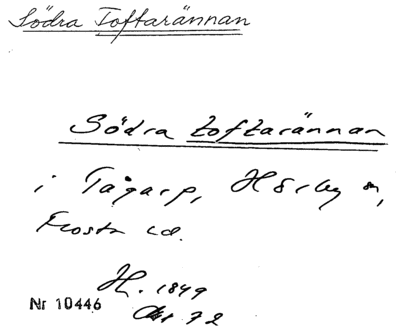 Södra Toftarännan
Södra toftarännan
i Tågarp, Hörby sn,
Frosta hd.
H. 1849
Nr 10446
Akt 72